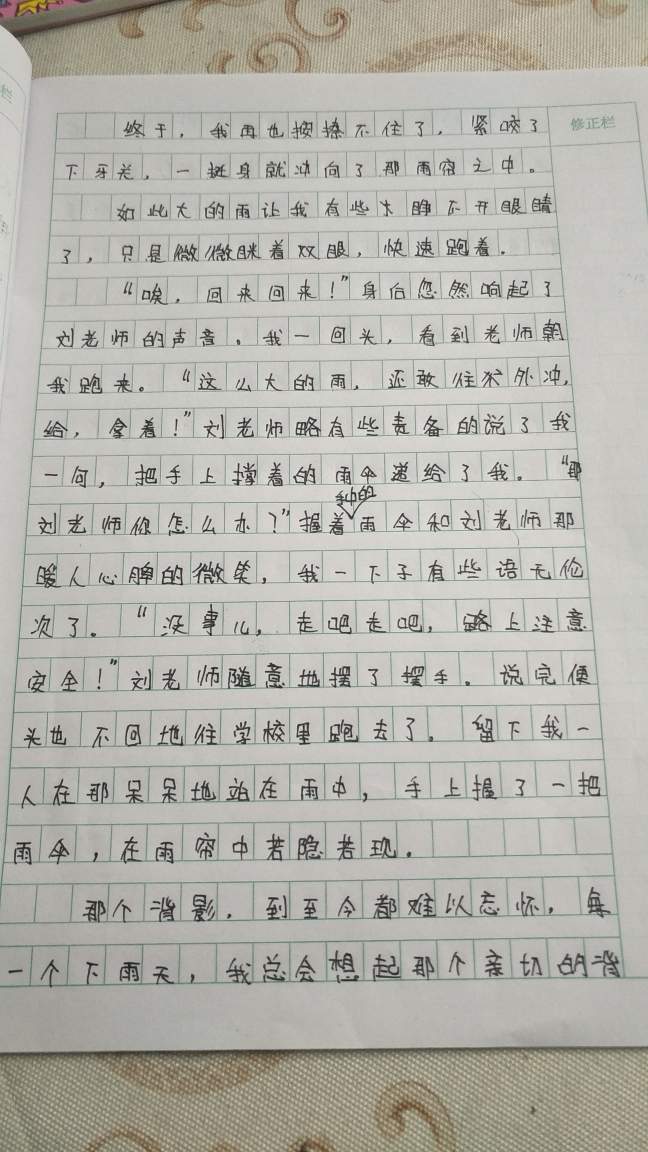 终于，我再也按捺不住了，紧咬了
修正栏
下牙关，一挺身就冲向了那雨帘之中。
如此大的雨让我有些太睁不开眼睛
了，只是微微眯着双眼，快速跑着。
“唉，回来回来！”身后忽然响起了
刘老师的声音。我一回头，看到老师朝
我跑来。“这么大的雨，还敢往外冲，
给，拿着！”刘老师略有些责备的说了我
一句，把手上撑着的雨伞递给了我。“那
手中的
刘老师你怎么办？”握着雨伞和刘老师那
暖人心脾的微笑，我一下子有些语无伦
次了。“没事儿，走吧走吧，路上注意
安全！”刘老师随意地摆了摆手。说完便
头也不回地往学校里跑去了。留下我一
人在那呆呆地站在雨中，手上握了一把
雨伞，在雨帘中若隐若现。
那个背影，到至今都难以忘怀，每
一个下雨天，我总会想起那个亲切的背